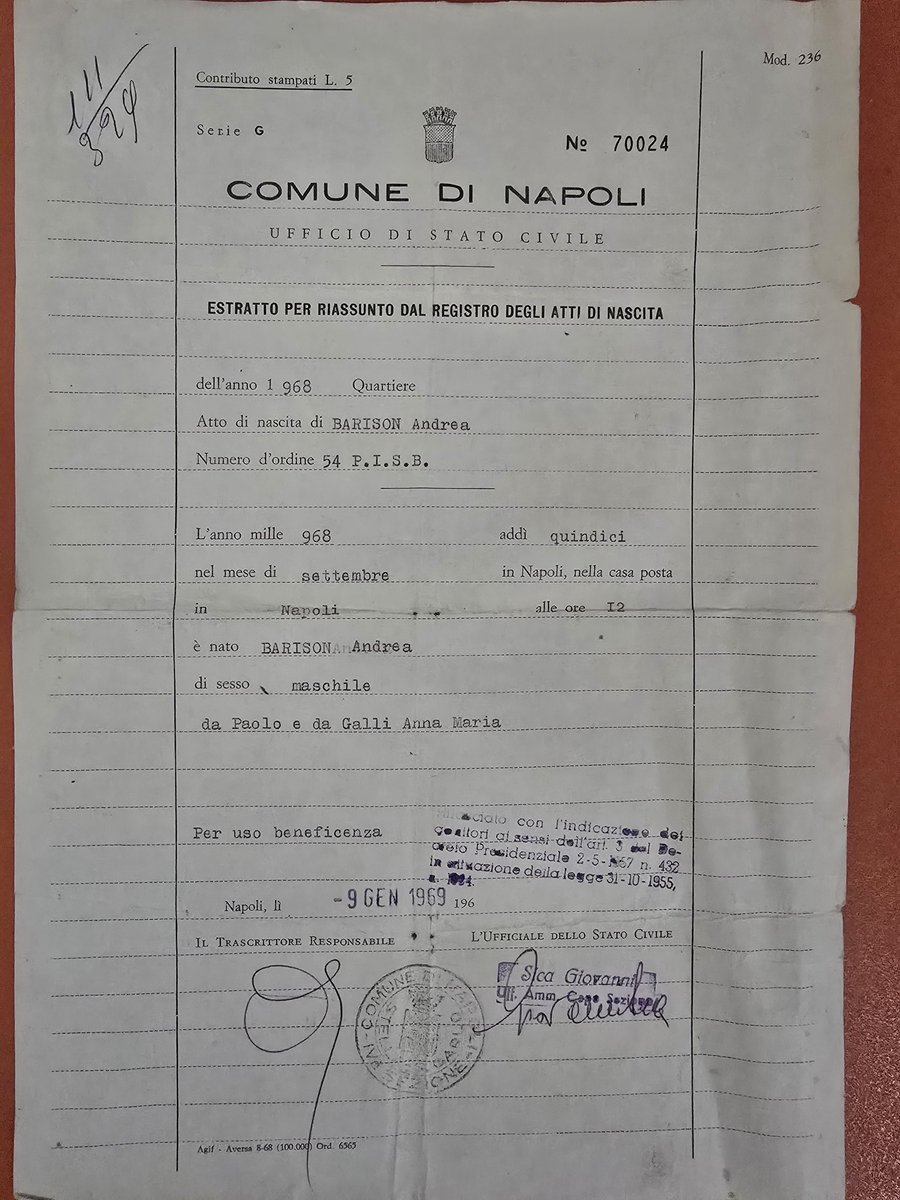 Mod. 236
Contributo stampati L. 5
Serie G
Nº 70024
COMUNE DI NAPOLI
UFFICIO DI STATO CIVILE
ESTRATTO PER RIASSUNTO DAL REGISTRO DEGLI ATTI DI NASCITA
dell'anno 1 968 Quartiere
Atto di nascita di BARISON Andrea
Numero d'ordine 54 P.I.S.B.
L'anno mille 968 addì quindici
nel mese di settembre in Napoli, nella casa posta
in Napoli alle ore I2
è nato BARISON Andrea
di sesso maschile
da Paolo e da Galli Anna Maria
Per uso beneficenza
con l'indicazione dei
genitori ai sensi dell'art. 3 del De-
creto Presidenziale 2-5-1967 n. 432
in attuazione della legge 31-10-1955,
Napoli, lì -9 GEN 1969 196
IL TRASCRITTORE RESPONSABILE
L'UFFICIALE DELLO STATO CIVILE
Sica Giovanni
Uff. Amm. Capo Sezione
COMUNE DI NAPOLI
Agif - Aversa 8-68 (100.000) Ord. 6565